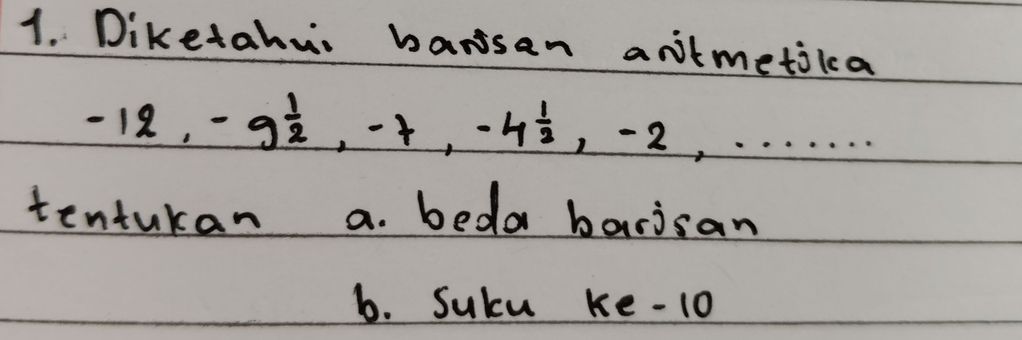 1. Diketahui barisan aritmetika
-12, -9½, -7, -4½, -2, .......
tentukan a. beda barisan
b. Suku ke-10